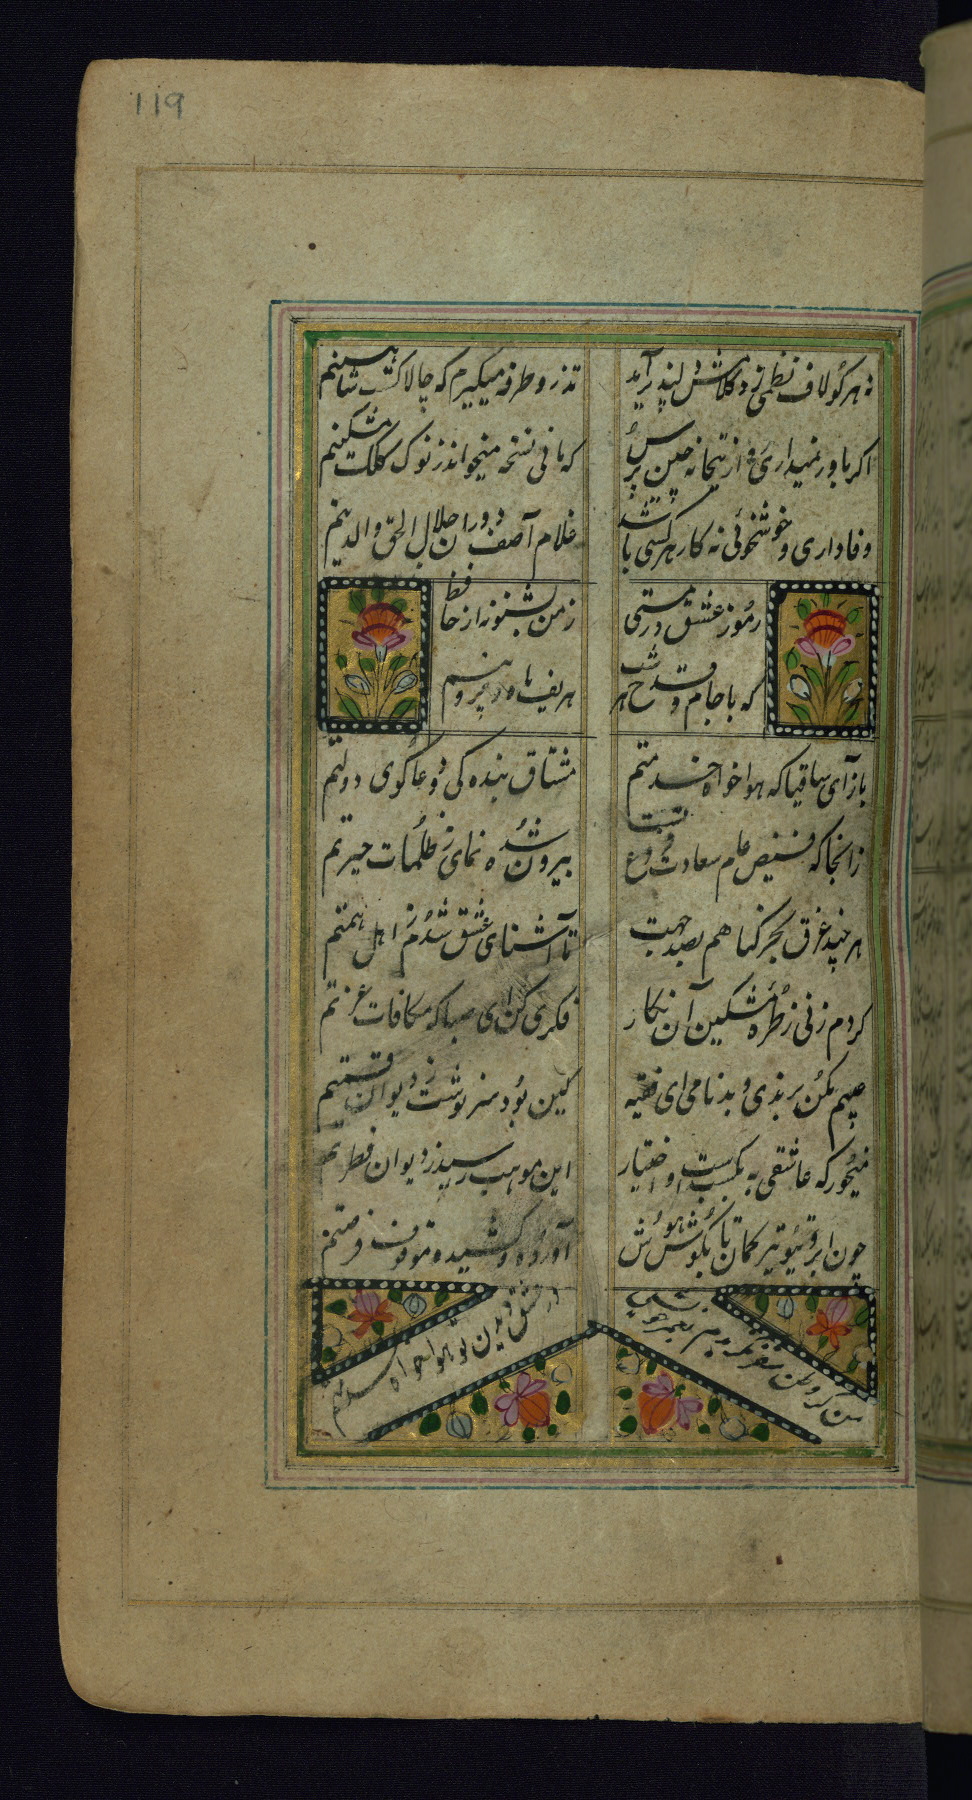 119
نه هر کو لاف نظمی زد کلامش دلپذیر آید
تذرو طرفه میگیرم که چالاکست شاهینم
اکر باور نمیداری رو از بتخانه چین پرس
که مانی نسخه میخواهد ز نوک کلک مشکینم
وفاداری و خوشخوئی نه کار هر کسی باشد
غلام آصف دوران جلال الحق والدینم
رموز عشق و مستی
ز من بشنو نه از حافظ
که با جام و قدح هر شب
حریف ماه و پروینم
بازآی ساقیا که هواخواه خدمتم
مشتاق بندکی و دعاکوی دولتم
زانجا که فیض عام سعادت فروغ تست
بیرون شدن نمای ز ظلمات حیرتم
هر چند غرق بحر کناهم بصد جهت
تا آشنای عشق شدم ز اهل همتم
کردم زنی ز طره مشکین آن نکار
فکری کن ای صبا که مکافات غیرتم
عیبم مکن برندی و بدنامی ای فقیه
کین بود سرنوشت ز دیوان قسمتم
میخور که عاشقی نه بکسبست و اختیار
این موهبت رسید ز دیوان فطرتم
چون ابروی تو تیر کمان تا بکوش هوش
آورده و کشیده و موقوف فرصتم
من کز وطن سفر نکزیدم بعمر خویش
در عشق دیدن تو هواخواه غربتم